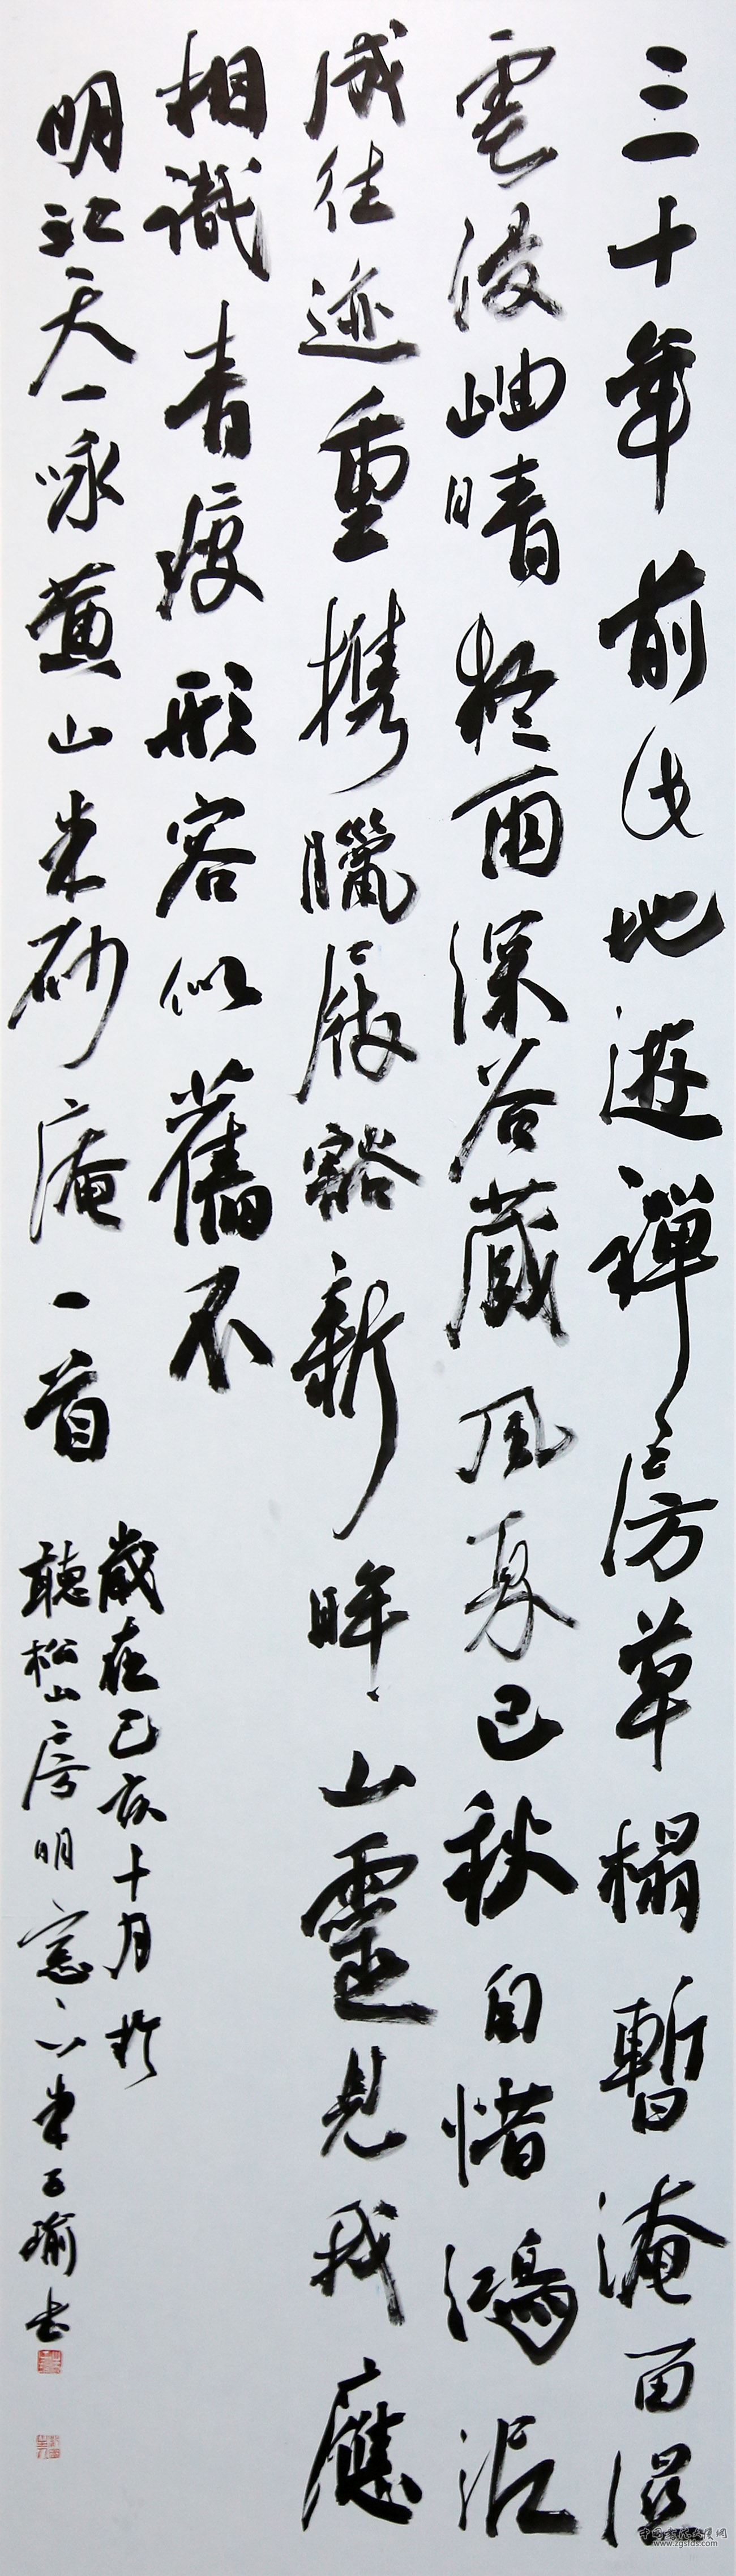 三十年前此地遊禪房草榻暫淹留
雲岫晴疑雨深谷藏風夏已秋自惜鴻泥
成往迹重携臘屐豁新眸山靈見我應
相識青瘦形容似舊不
明江天一咏黄山朱砂庵一首
歲在己亥十月於
聽松山房明窗下朱子瑜书